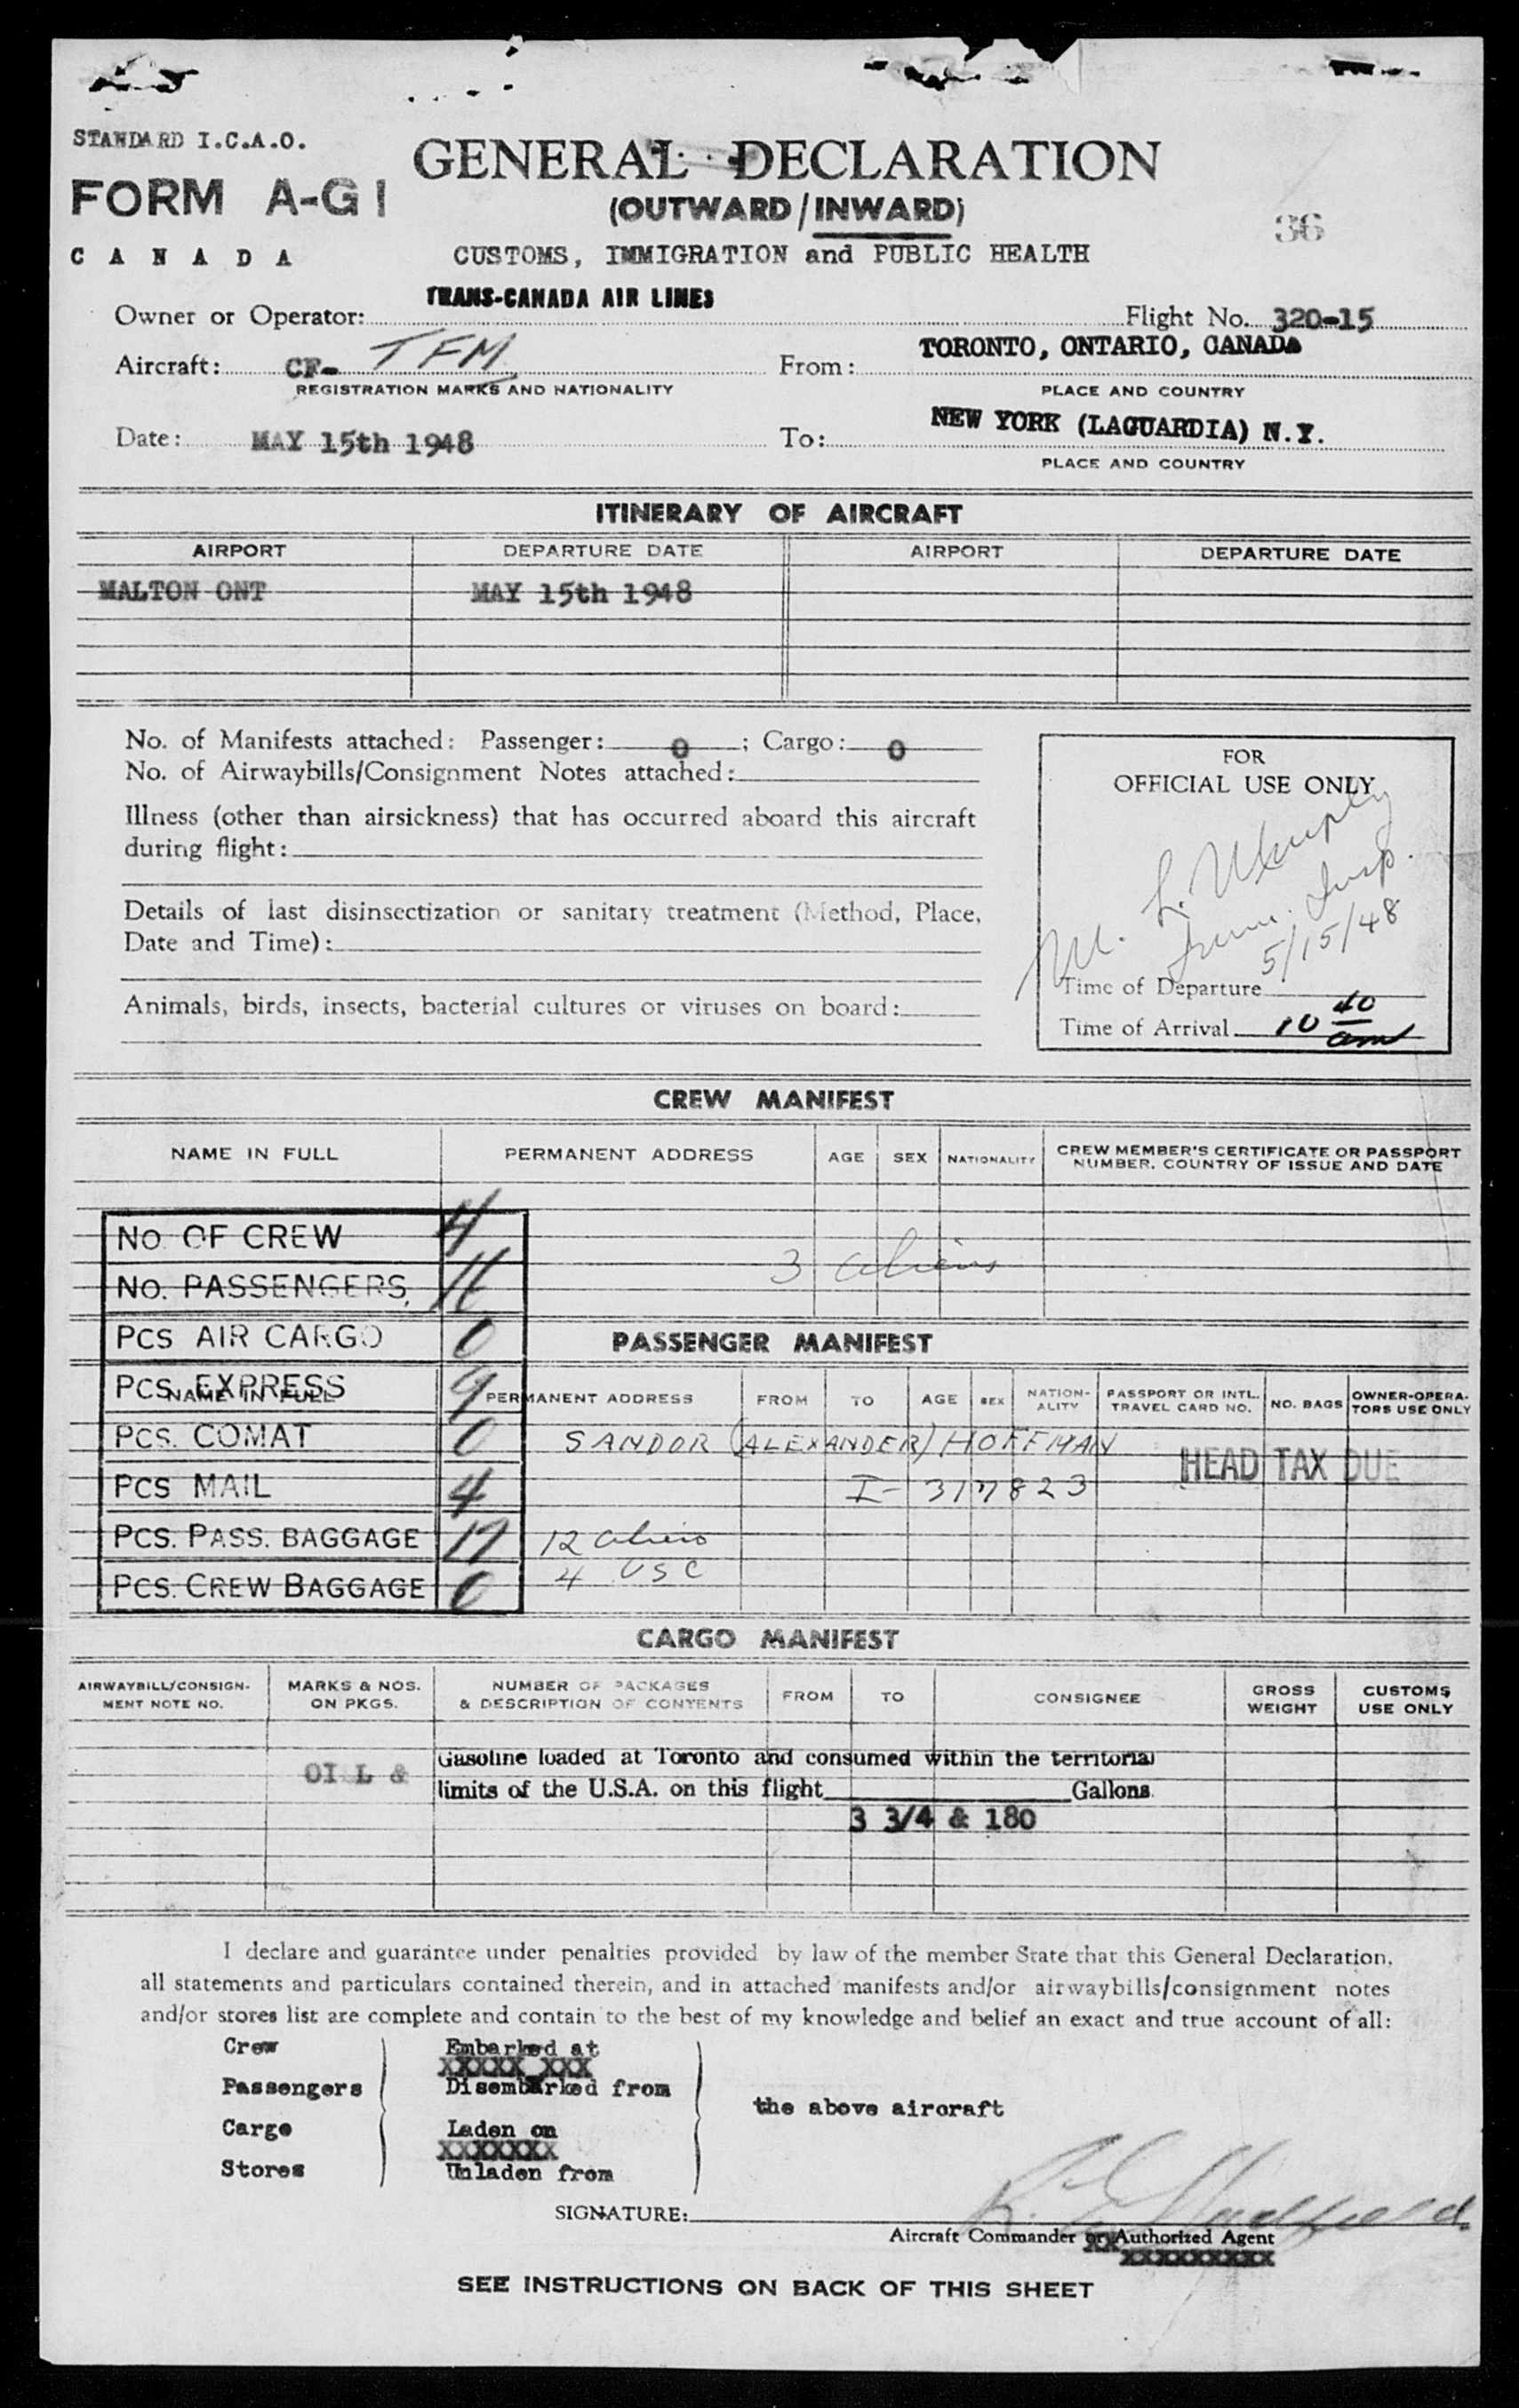 STANDARD I.C.A.O.
FORM A-G1
CANADA
GENERAL DECLARATION
(OUTWARD/INWARD)
CUSTOMS, IMMIGRATION and PUBLIC HEALTH
36
Owner or Operator: TRANS-CANADA AIR LINES Flight No. 320-15
Aircraft: CF- TFM From: TORONTO, ONTARIO, CANADA
REGISTRATION MARKS AND NATIONALITY PLACE AND COUNTRY
Date: MAY 15th 1948 To: NEW YORK (LAGUARDIA) N.Y.
PLACE AND COUNTRY
ITINERARY OF AIRCRAFT
AIRPORT DEPARTURE DATE AIRPORT DEPARTURE DATE
MALTON ONT MAY 15th 1948
No. of Manifests attached: Passenger: 0 ; Cargo: 0
No. of Airwaybills/Consignment Notes attached:
Illness (other than airsickness) that has occurred aboard this aircraft
during flight:
Details of last disinsectization or sanitary treatment (Method, Place,
Date and Time):
Animals, birds, insects, bacterial cultures or viruses on board:
FOR
OFFICIAL USE ONLY
M. L.
Imm. Insp.
5/15/48
Time of Departure
Time of Arrival 10 40 am
CREW MANIFEST
NAME IN FULL PERMANENT ADDRESS AGE SEX NATIONALITY CREW MEMBER'S CERTIFICATE OR PASSPORT
NUMBER, COUNTRY OF ISSUE AND DATE
No OF CREW 4
3 aliens
No. PASSENGERS
Pcs AIR CARGO 0
PASSENGER MANIFEST
Pcs. EXPRESS 9
NAME IN FULL PERMANENT ADDRESS FROM TO AGE SEX NATION-ALITY PASSPORT OR INTL. TRAVEL CARD NO. NO. BAGS OWNER-OPERA-TORS USE ONLY
Pcs. COMAT 0 SANDOR (ALEXANDER) HOFFMAN
HEAD TAX DUE
Pcs MAIL 4 I-317823
Pcs. PASS. BAGGAGE 17 12 aliens
4 USC
Pcs. CREW BAGGAGE 0
CARGO MANIFEST
AIRWAYBILL/CONSIGN-MENT NOTE NO. MARKS & NOS. ON PKGS. NUMBER OF PACKAGES & DESCRIPTION OF CONTENTS FROM TO CONSIGNEE GROSS WEIGHT CUSTOMS USE ONLY
OIL & Gasoline loaded at Toronto and consumed within the territorial
limits of the U.S.A. on this flight Gallons.
3 3/4 & 180
I declare and guarantee under penalties provided by law of the member State that this General Declaration,
all statements and particulars contained therein, and in attached manifests and/or airwaybills/consignment notes
and/or stores list are complete and contain to the best of my knowledge and belief an exact and true account of all:
Crew Embarked at
XXXXX XXX
Passengers Disembarked from
the above aircraft
Cargo Laden on
XXXXXXX
Stores Unladen from
SIGNATURE:
Aircraft Commander or Authorized Agent
XXXXXXXXXX
SEE INSTRUCTIONS ON BACK OF THIS SHEET